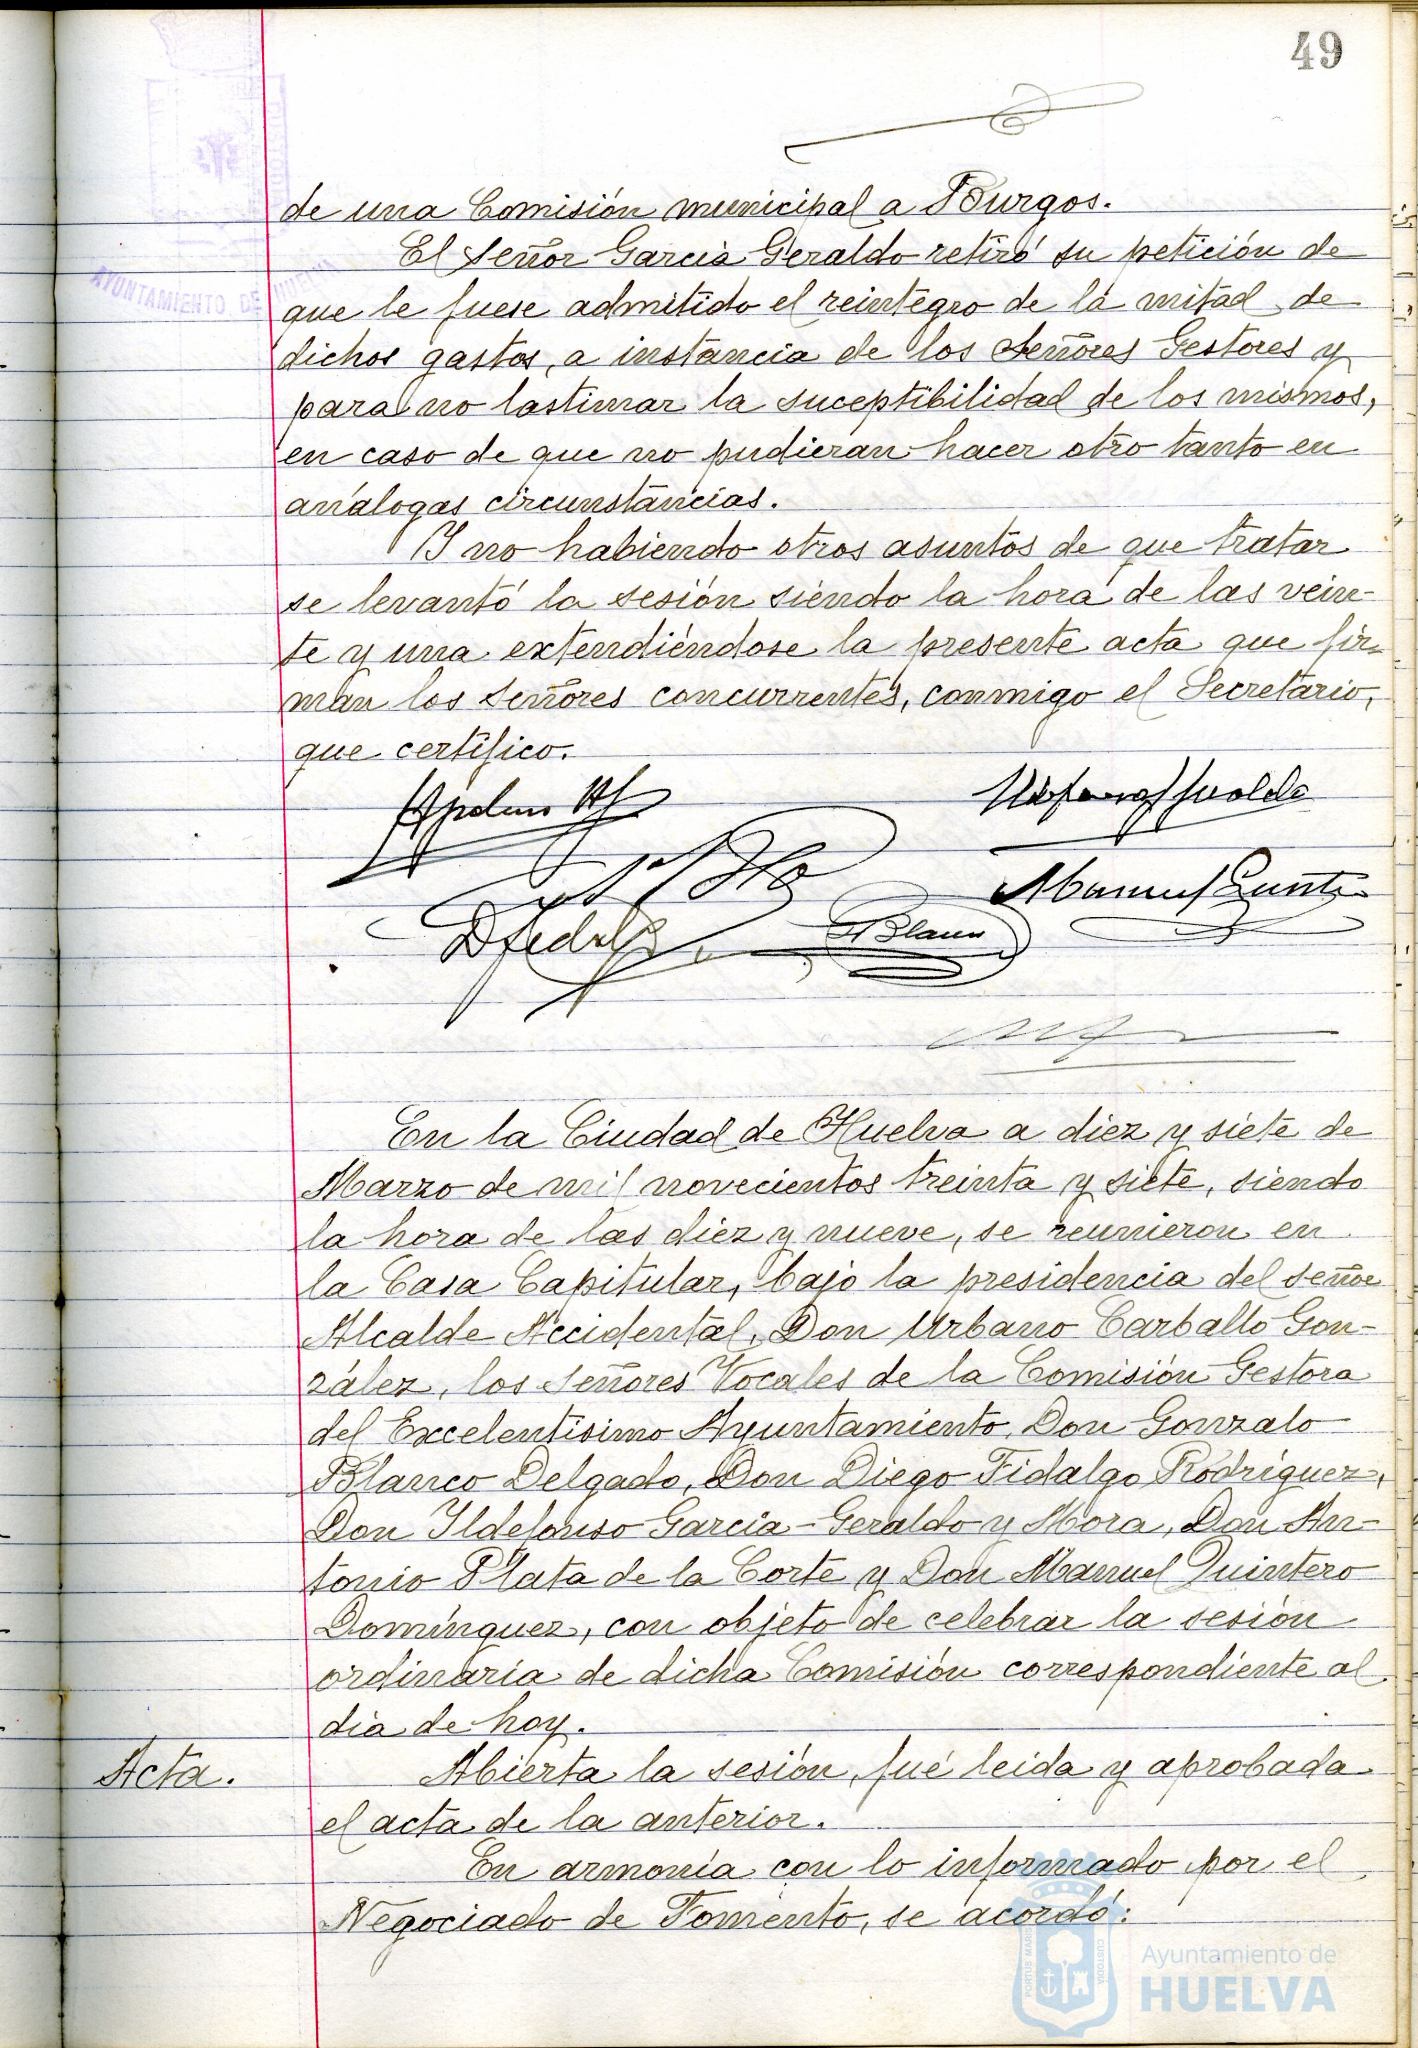 49
de una Comisión municipal a Burgos.
El Señor García Geraldo retiró su petición de
que le fuese admitido el reintegro de la mitad de
dichos gastos, a instancia de los Señores Gestores y
para no lastimar la suceptibilidad de los mismos,
en caso de que no pudieran hacer otro tanto en
análogas circunstancias.
Y no habiendo otros asuntos de que tratar
se levantó la sesión siendo la hora de las vein-
te y una extendiéndose la presente acta que fir-
man los Señores concurrentes, conmigo el Secretario,
que certifico.
Manuel Quintero
D Fidalgo
G Blanco
En la Ciudad de Huelva a diez y siete de
Marzo de mil novecientos treinta y siete, siendo
la hora de las diez y nueve, se reunieron en
la Casa Capitular, bajo la presidencia del señor
Alcalde Accidental, Don Urbano Carballo Gon-
zález, los Señores Vocales de la Comisión Gestora
del Excelentísimo Ayuntamiento, Don Gonzalo
Blanco Delgado, Don Diego Fidalgo Rodríguez,
Don Ildefonso García-Geraldo y Mora, Don An-
tonio Plata de la Corte y Don Manuel Quintero
Domínguez, con objeto de celebrar la sesión
ordinaria de dicha Comisión correspondiente al
día de hoy.
Acta. Abierta la sesión, fué leida y aprobada
el acta de la anterior.
En armonía con lo informado por el
Negociado de Fomento, se acordó:
AYUNTAMIENTO DE HUELVA
PORTUS MARIS
CUSTODIA
Ayuntamiento de
HUELVA